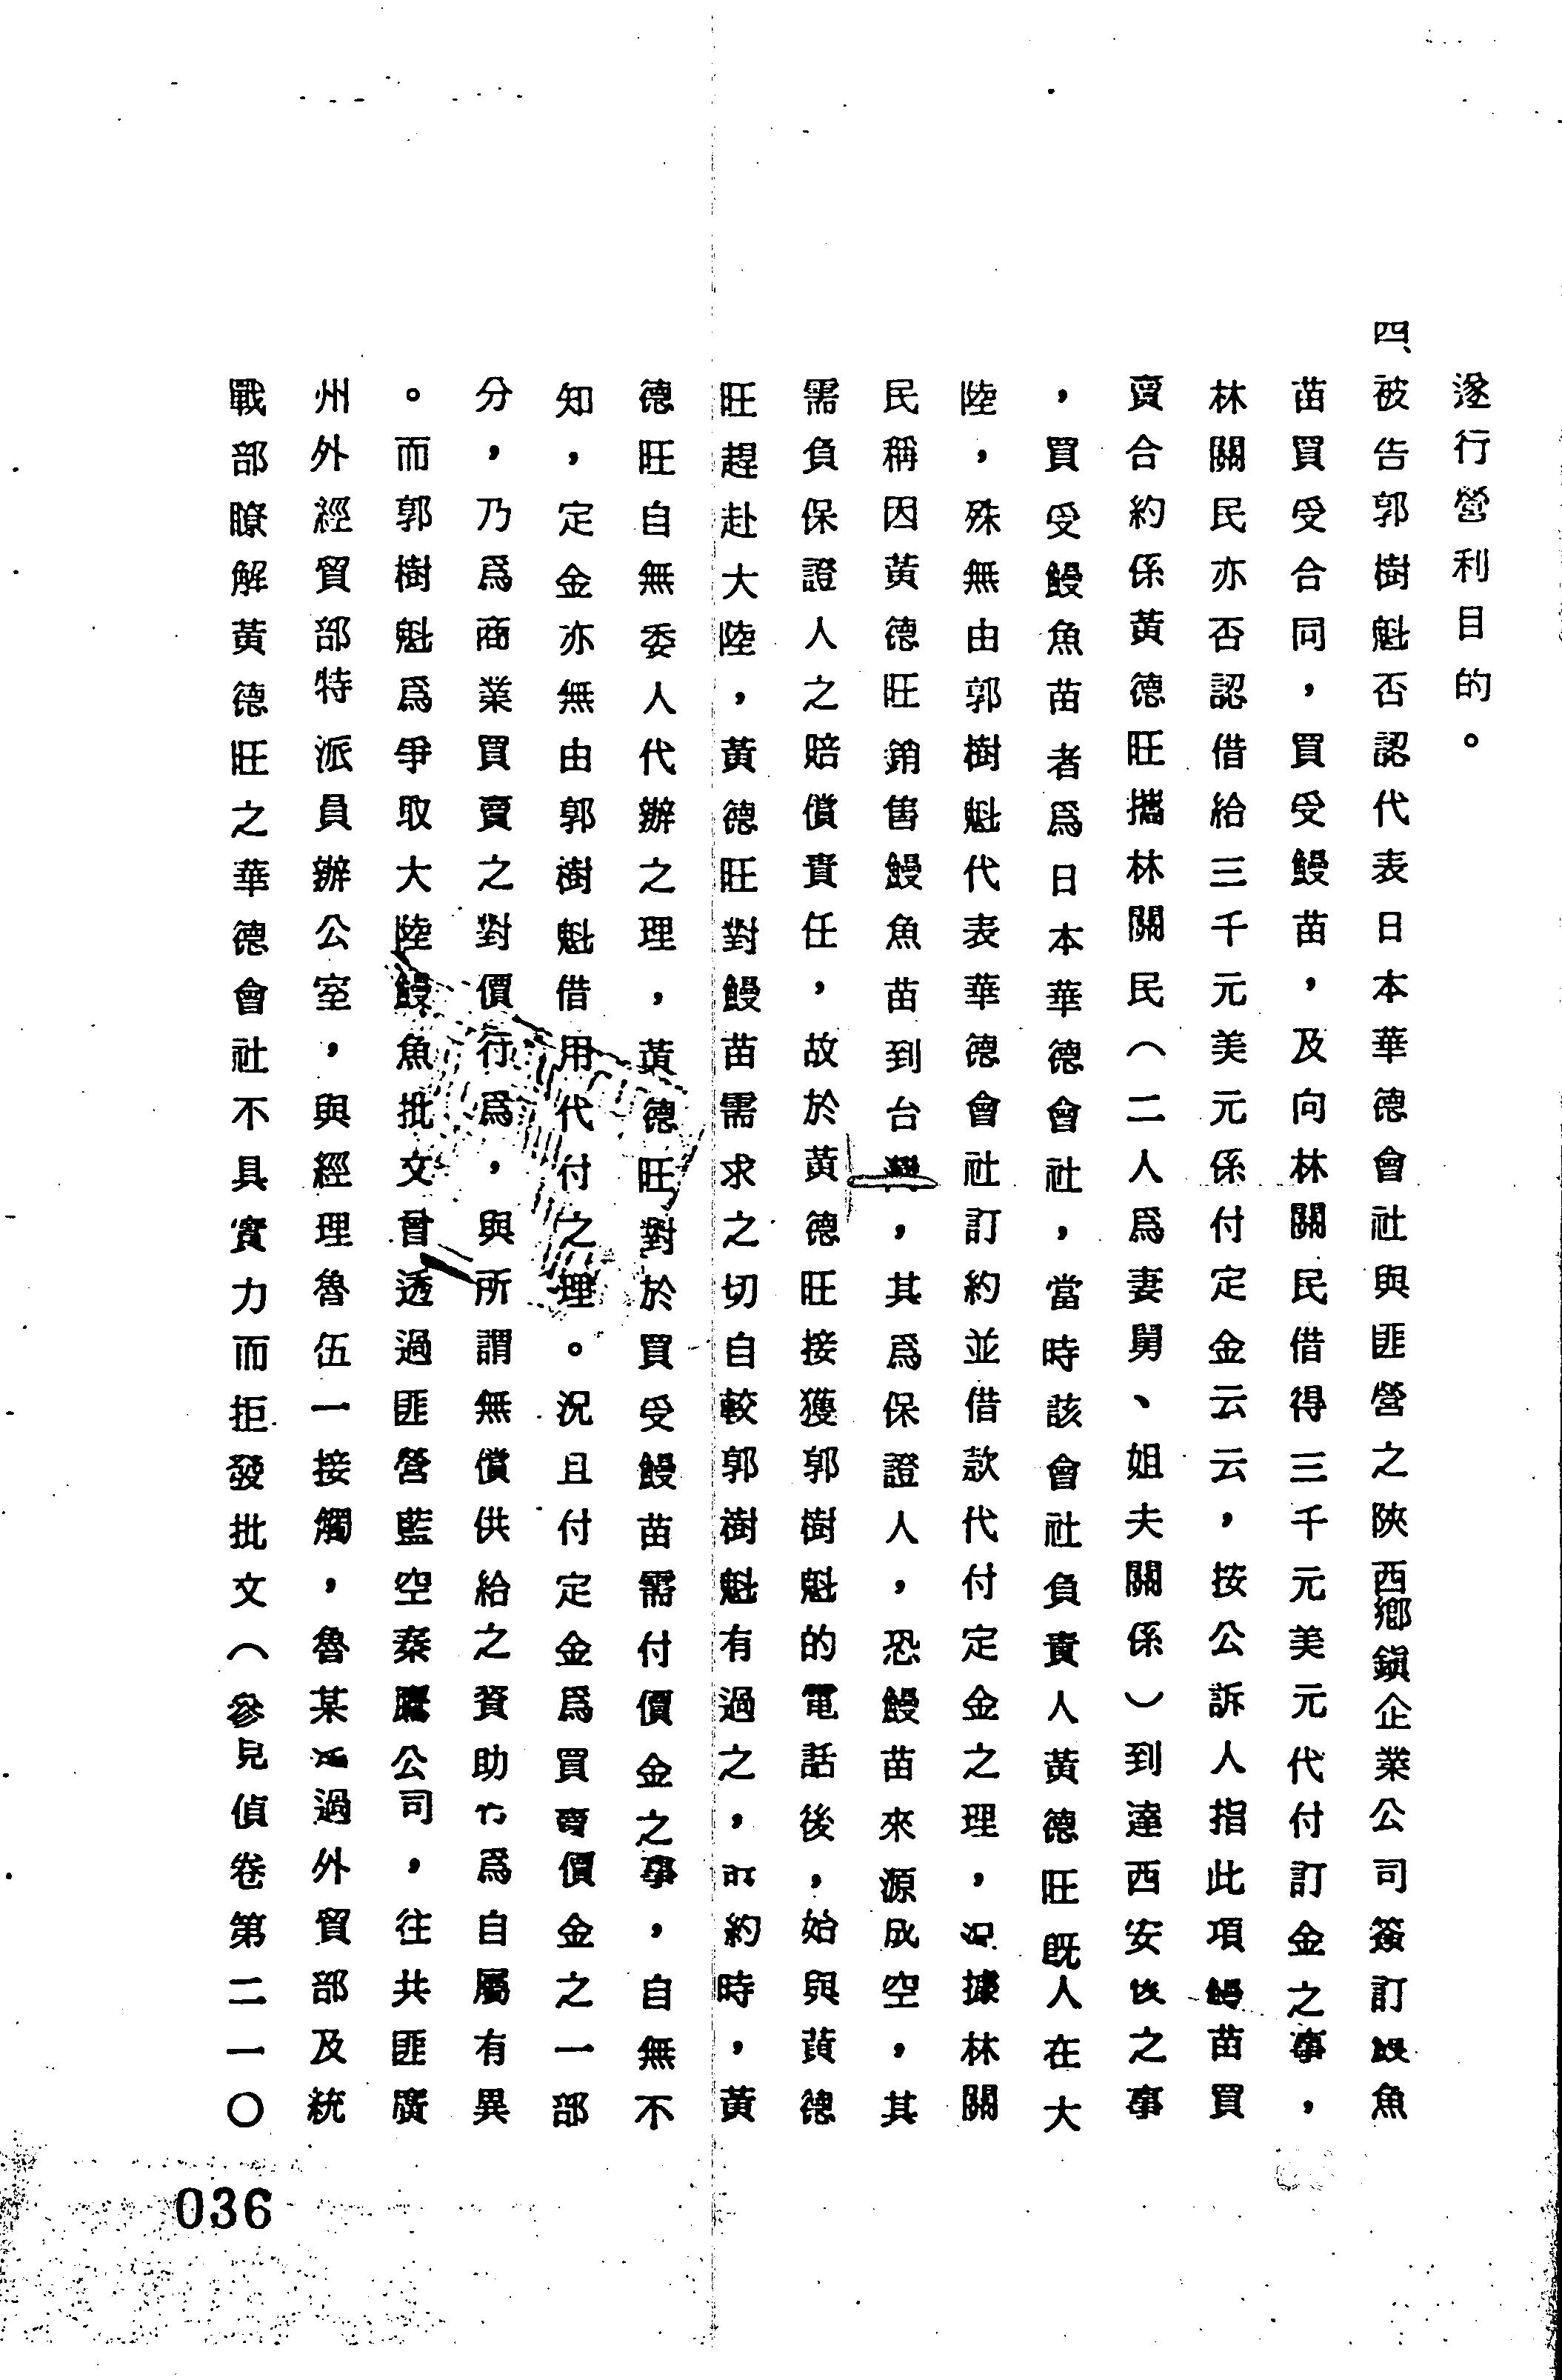 遂行營利目的。
四、被告郭樹魁否認代表日本華德會社與匪營之陝西鄉鎮企業公司簽訂鰻魚
苗買受合同，買受鰻苗，及向林關民借得三千元美元代付訂金之事，
林關民亦否認借給三千元美元係付定金云云，按公訴人指此項鰻苗買
賣合約係黃德旺攜林關民（二人爲妻舅、姐夫關係）到達西安後之事
，買受鰻魚苗者爲日本華德會社，當時該會社負責人黃德旺既人在大
陸，殊無由郭樹魁代表華德會社訂約並借款代付定金之理，況據林關
民稱因黃德旺銷售鰻魚苗到台灣，其爲保證人，恐鰻苗來源成空，其
需負保證人之賠償責任，故於黃德旺接獲郭樹魁的電話後，始與黃德
旺趕赴大陸，黃德旺對鰻苗需求之切自較郭樹魁有過之，訂約時，黃
德旺自無委人代辦之理，黃德旺對於買受鰻苗需付價金之事，自無不
知，定金亦無由郭樹魁借用代付之理。況且付定金爲買賣價金之一部
分，乃爲商業買賣之對價行爲，與所謂無償供給之資助行爲自屬有異
。而郭樹魁爲爭取大陸鰻魚批文曾透過匪營藍空秦鷹公司，往共匪廣
州外經貿部特派員辦公室，與經理魯伍一接觸，魯某透過外貿部及統
戰部瞭解黃德旺之華德會社不具實力而拒發批文（參見偵卷第二一〇
036